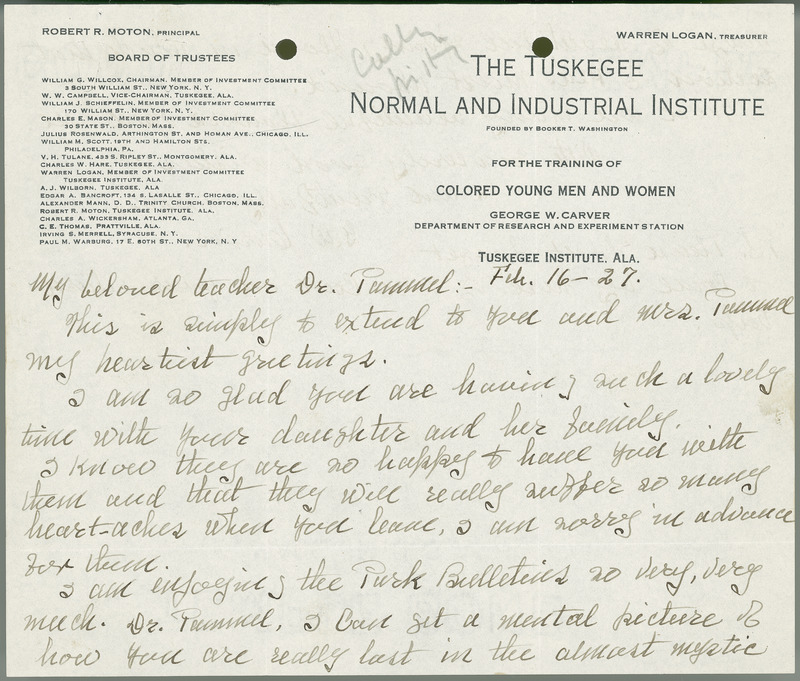 ROBERT R. MOTON, PRINCIPAL
WARREN LOGAN, TREASURER
BOARD OF TRUSTEES
WILLIAM G. WILLCOX, CHAIRMAN, MEMBER OF INVESTMENT COMMITTEE
3 SOUTH WILLIAM ST., NEW YORK, N. Y.
W. W. CAMPBELL, VICE-CHAIRMAN, TUSKEGEE, ALA.
WILLIAM J. SCHIEFFELIN, MEMBER OF INVESTMENT COMMITTEE
170 WILLIAM ST., NEW YORK, N. Y.
CHARLES E. MASON, MEMBER OF INVESTMENT COMMITTEE
30 STATE ST., BOSTON, MASS.
JULIUS ROSENWALD, ARTHINGTON ST. AND HOMAN AVE., CHICAGO, ILL.
WILLIAM M. SCOTT, 19TH AND HAMILTON STS.
PHILADELPHIA, PA.
V. H. TULANE, 453 S. RIPLEY ST., MONTGOMERY, ALA.
CHARLES W. HARE, TUSKEGEE, ALA.
WARREN LOGAN, MEMBER OF INVESTMENT COMMITTEE
TUSKEGEE INSTITUTE, ALA.
A. J. WILBORN, TUSKEGEE, ALA
EDGAR A. BANCROFT, 134 S. LASALLE ST., CHICAGO, ILL.
ALEXANDER MANN, D. D., TRINITY CHURCH, BOSTON, MASS.
ROBERT R. MOTON, TUSKEGEE INSTITUTE, ALA.
CHARLES A. WICKERSHAM, ATLANTA, GA.
C. E. THOMAS, PRATTVILLE, ALA.
IRVING S. MERRELL, SYRACUSE, N. Y.
PAUL M. WARBURG, 17 E. 80TH ST., NEW YORK, N. Y
THE TUSKEGEE
NORMAL AND INDUSTRIAL INSTITUTE
FOUNDED BY BOOKER T. WASHINGTON
FOR THE TRAINING OF
COLORED YOUNG MEN AND WOMEN
GEORGE W. CARVER
DEPARTMENT OF RESEARCH AND EXPERIMENT STATION
TUSKEGEE INSTITUTE, ALA.
Feb. 16-27.
My beloved teacher Dr. Pammel:-
This is simply to extend to you and Mrs. Pammel
my heartiest greetings.
I am so glad you are having such a lovely
time with your daughter and her family.
I know they are so happy to have you with
them and that they will really suffer so many
heart-aches when you leave, I am sorry in advance
for them.
I am enjoying the Park Bulletins so very, very
much. Dr. Pammel, I can get a mental picture of
how you are really lost in the almost mystic